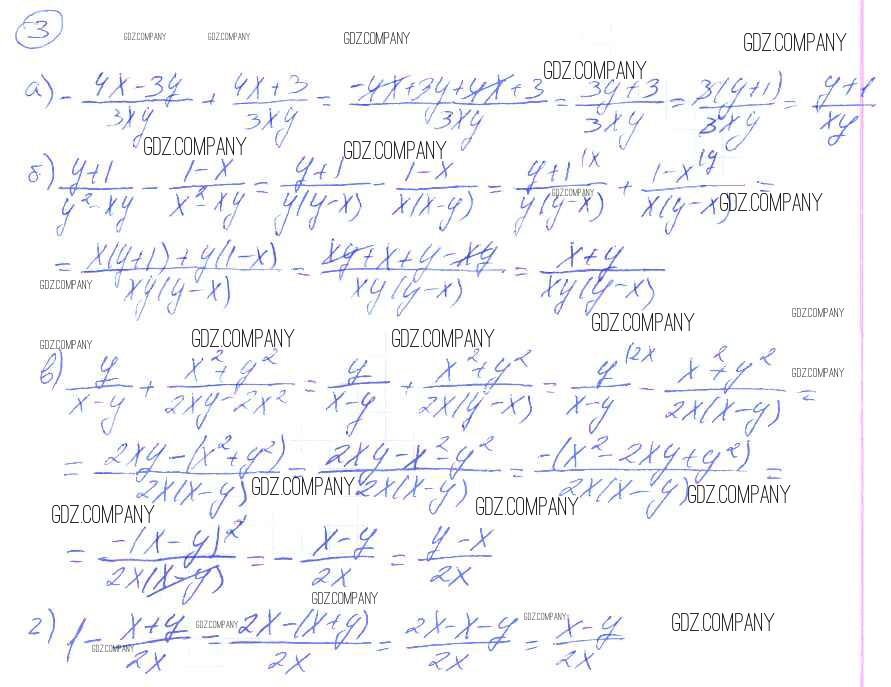 3
GDZ.COMPANY GDZ.COMPANY GDZ.COMPANY GDZ.COMPANY
GDZ.COMPANY
а) - (4x-3y)/(3xy) + (4x+3)/(3xy) = (-4x+3y+4x+3)/(3xy) = (3y+3)/(3xy) = (3(y+1))/(3xy) = (y+1)/(xy)
GDZ.COMPANY GDZ.COMPANY
б) (y+1)/(y²-xy) - (1-x)/(x²-xy) = (y+1)/(y(y-x)) - (1-x)/(x(x-y)) = (y+1)/(y(y-x)) |x + (1-x)/(x(y-x)) |y =
GDZ.COMPANY GDZ.COMPANY
= (x(y+1)+y(1-x))/(xy(y-x)) = (xy+x+y-xy)/(xy(y-x)) = (x+y)/(xy(y-x))
GDZ.COMPANY
GDZ.COMPANY GDZ.COMPANY
GDZ.COMPANY GDZ.COMPANY GDZ.COMPANY
в) y/(x-y) + (x²+y²)/(2xy-2x²) = y/(x-y) + (x²+y²)/(2x(y-x)) = y/(x-y) |2x - (x²+y²)/(2x(x-y)) =
GDZ.COMPANY
= (2xy-(x²+y²))/(2x(x-y)) = (2xy-x²-y²)/(2x(x-y)) = (-(x²-2xy+y²))/(2x(x-y)) =
GDZ.COMPANY GDZ.COMPANY
GDZ.COMPANY GDZ.COMPANY
= (-(x-y)²)/(2x(x-y)) = - (x-y)/(2x) = (y-x)/(2x)
GDZ.COMPANY
GDZ.COMPANY GDZ.COMPANY GDZ.COMPANY
г) 1 - (x+y)/(2x) = (2x-(x+y))/(2x) = (2x-x-y)/(2x) = (x-y)/(2x)
GDZ.COMPANY